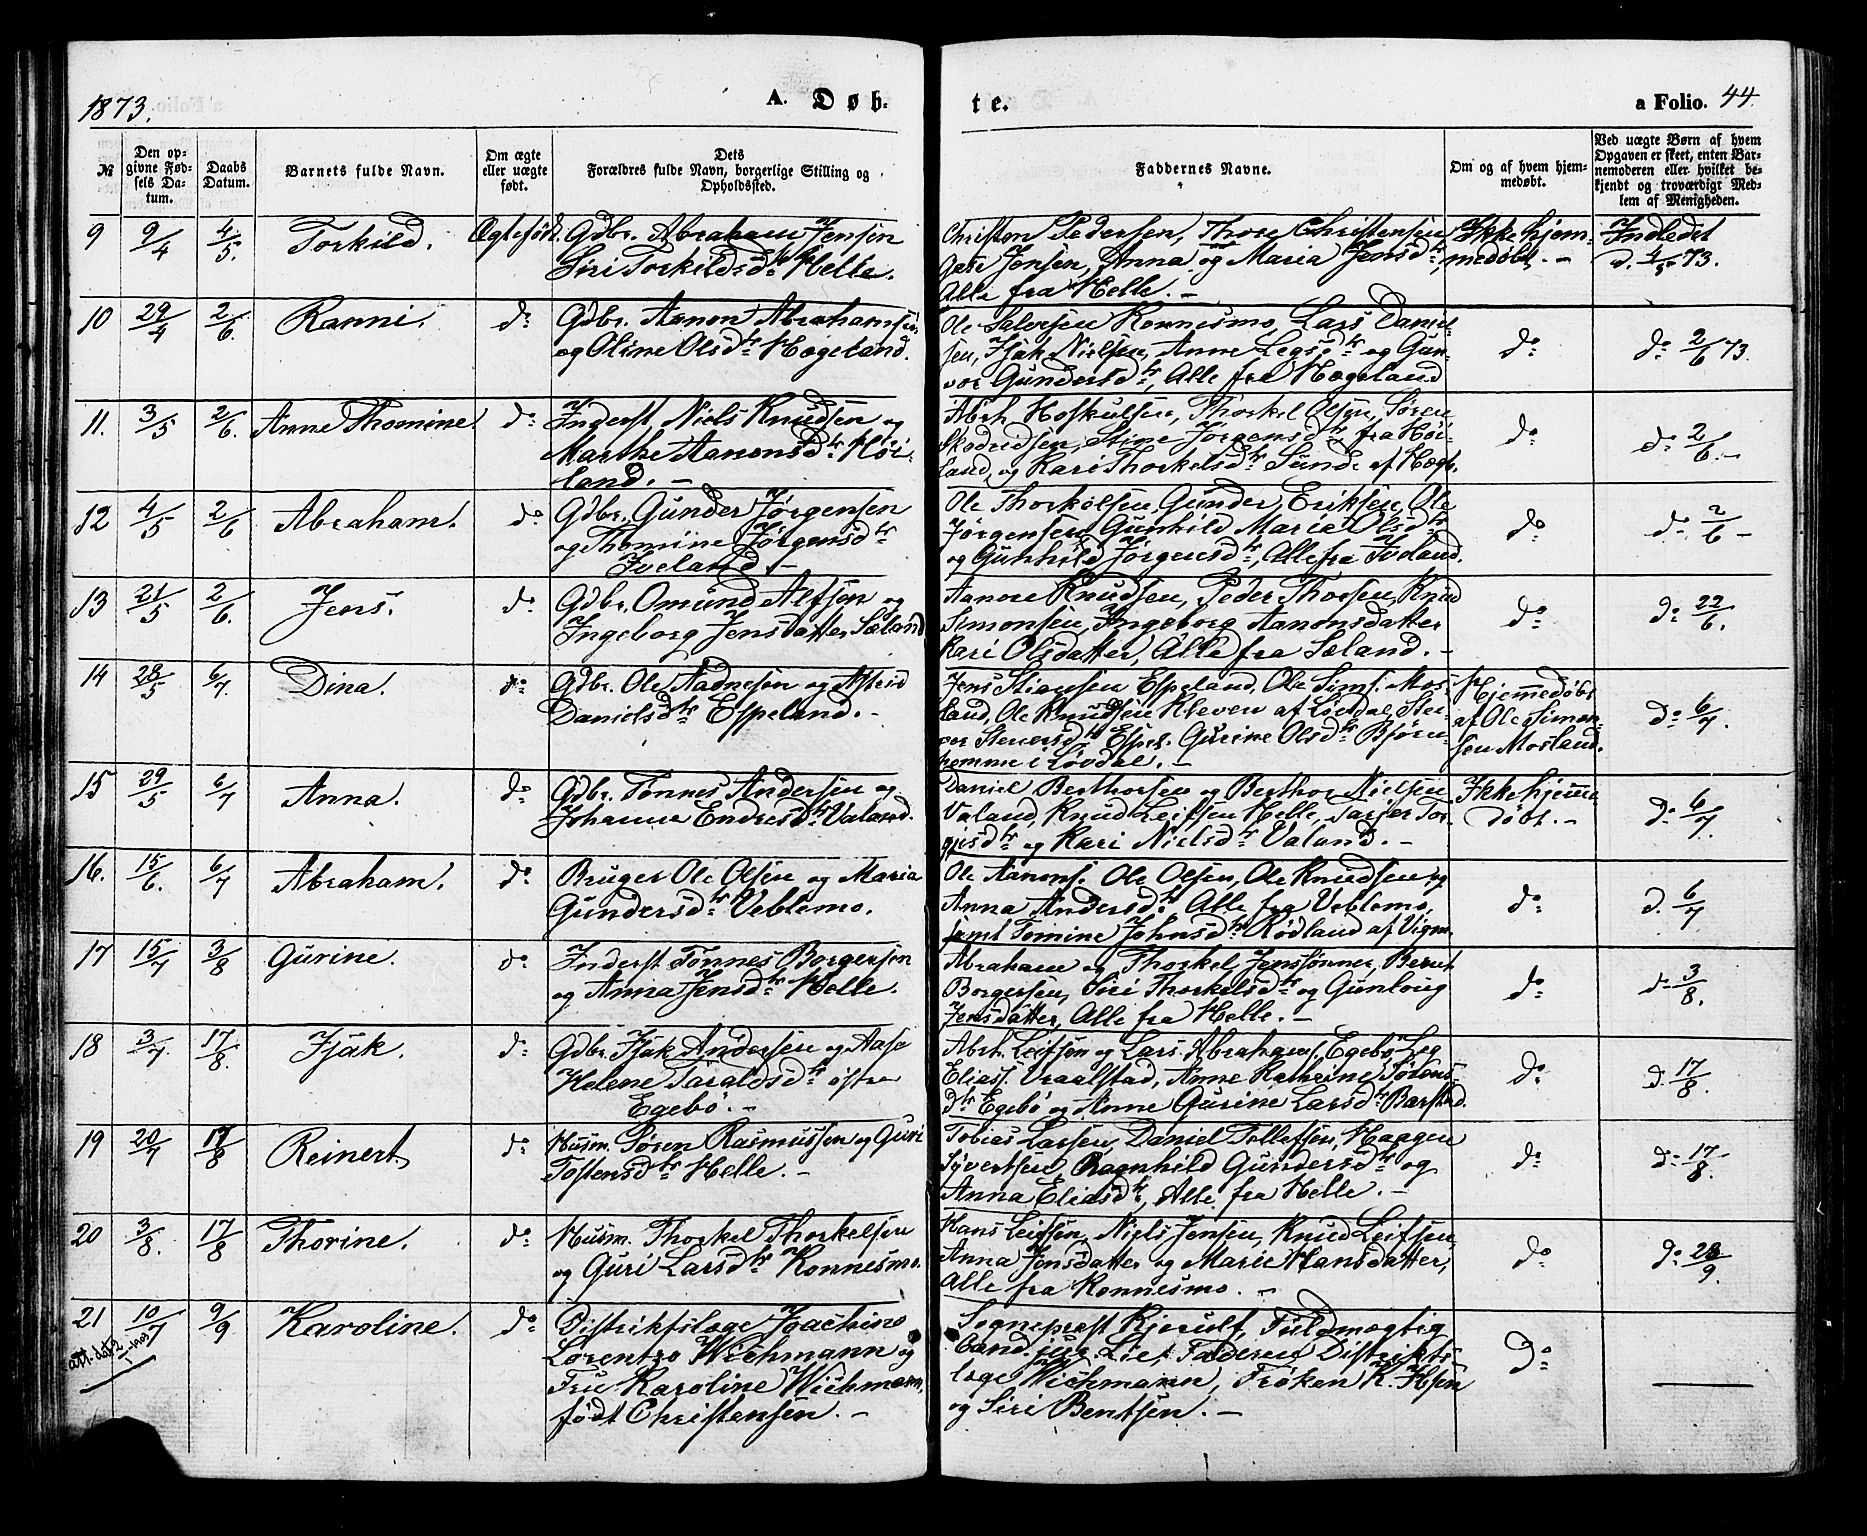 1873.
A. Døb-
te.
a Folio. 44.
№
Den op-
givne Fød-
sels Da-
tum.
Daabs
Datum.
Barnets fulde Navn.
Om ægte
eller uægte
født.
Dets
Forældres fulde Navn, borgerlige Stilling og
Opholdssted.
Faddernes Navne.
Om og af hvem hjem-
medøbt.
Ved uægte Børn af hvem
Opgaven er skeet, enten Bar-
nemoderen eller hvilket be-
kjendt og troværdigt Med-
lem af Menigheden.
9 9/4 4/5. Torkild. Ægtefødt. Gdbr. Abraham Jensen
Siri Torkildsdtr. Helle.
Christen Pedersen, Thore Christensen
Jensen, Anna og Maria Jensdtr,
Alle fra Helle. –
Ikke hjem-
medøbt. –
Indledet
d. 4/5 73.
10 29/4 2/6. Ranni. do Gdbr. Aanon Abrahamsen
og Oline Olsdtr. Hægeland.
Ole Salvesen Konnesmo, Lars Daniel-
sen, Isak Nielsen, Anne Legsdtr og Gun-
vor Gundersdtr, Alle fra Hægeland
do
do 2/6 73.
11. 3/5 2/6. Anne Thomine do Inderst Niels Knudsen og
Marthe Aanonsdtr. Høi-
land. –
Abrh. Hoskulsen, Thorkel Olsen, Søren
Skadridsen, Stine Jørgensdtr, fra Høi-
land, og Kari Thorkelsdtr. Sunde af Hægb.
do
do 2/6. –
12 4/5 2/6 Abraham. do Gdbr. Gunder Jørgensen
og Thomine Jørgensdtr
Iveland. –
Ole Thorkelsen, Gunder Eriksen, Ole
Jørgensen, Gunhild Marie Olsdtr
og Gunhild Jørgensdtr, Alle fra Iveland.
do
do 2/6 –
13 21/5 2/6. Jens. do Gdbr. Omund Alfsen og
Ingeborg Jensdatter Sæland
Aanon Knudsen, Peder Thorsen, Knud
Simonsen, Ingeborg Aanonsdatter
Kari Olsdatter, Alle fra Sæland. –
do
do 22/6.
14 28/5 6/7. Dina. do Gdbr. Ole Nadnesen og Astrid
Danielsdtr Espeland. –
Jens Stiansen Espeland, Ole Sims. Mos-
land, Ole Knudsen Kleven af Løvdal, Ste-
ver Stenersdtr Espel. Gurine Olsdtr Bjørn-
homme i Løvdal. –
Hjemmedøbt
af Ole Simon-
sen Mosland.
do 6/7.
15 29/5 6/7 Anna. do Gdbr. Tønnes Andersen og
Johanne Endresdtr Valand.
Daniel Berthorsen og Berthor Nielsen
Valand, Knud Leifsen Helle, Tarjer Tor-
gjisdtr og Kari Nielsdtr Valand. –
Ikke hjemme
døbt. –
do 6/7.
16. 15/6. 6/7 Abraham. do Bruger Ole Olsen og Maria
Gundersdtr. Veblemo.
Ole Aanons. Ole Olsen, Ole Knudsen og
Anna Andersdtr. Alle fra Veblemo,
samt Tomine Johnsdtr Rødland af Vigm.
do
d. 6/7
17 15/7 3/8 Gurine. do Inderst Tønnes Borgersen
og Anna Jensdtr Helle.
Abraham og Thorkel Jenssønner, Berent
Borgersen, Siri Thorkelsdtr og Gunloug
Jensdatter, Alle fra Helle. –
do
do 3/8.
18 3/7. 17/8. Isak. do Gdbr. Isak Andersen og Aase
Helene Taraldsdtr østre
Egebø. –
Abrh. Leifsen og Lars Abrahams. Egebø, Leg
Eliass. Vraalstad, Anne Kathrine Sørens-
dtr Egebø og Anne Gurine Larsdtr Barstad.
do
d. 17/8.
19 20/7 17/8 Reinert. do Husm. Søren Rasmussen og Guri
Tostensdtr Helle. –
Tobias Larsen, Daniel Tellefsen, Haagen
Syvertsen, Ragnhild Gundersdtr og
Anna Eliasdtr, Alle fra Helle. –
do
do 17/8.
20 3/8. 17/8 Thorine. do Husm. Thorkel Thorkelsen
og Guri Larsdtr Konnesmo.
Hans Leifsen, Niels Jensen, Knud Leifsen,
Anna Jonsdatter og Marie Hansdatter,
Alle fra Konnesmo. –
do
do 28/9.
21 10/7 9/9 Karoline. do Distriktslæge Joachim
att. dat 2/1 1903
Lorentzo Wichmann og
Fru Karoline Wichmann,
født Christensen. –
Sogneprest Kjerulf, Fuldmægtig
Cand. jur. Lie, Faderen Distrikts-
læge Wichmann, Frøken K.
og Siri Bentsen. –
do